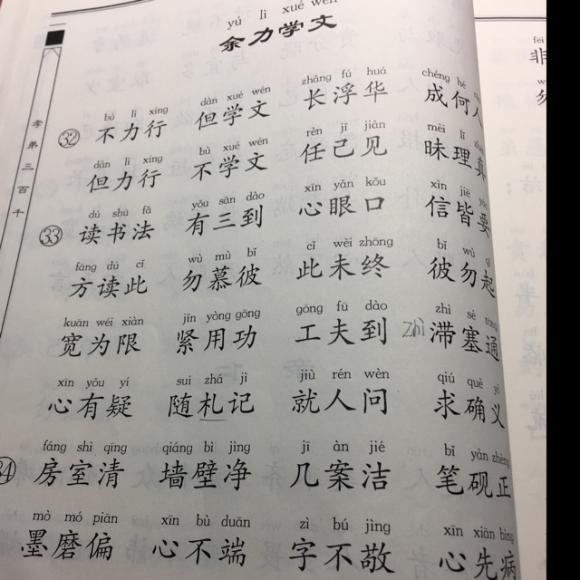 yú lì xué wén
余力学文
bú lì xíng dàn xué wén zhǎng fú huá chéng hé
㉜ 不力行 但学文 长浮华 成何人
dàn lì xíng bù xué wén rèn jǐ jiàn mèi lǐ
但力行 不学文 任己见 昧理真
dú shū fǎ yǒu sān dào xīn yǎn kǒu xìn jiē
㉝ 读书法 有三到 心眼口 信皆要
fāng dú cǐ wù mù bǐ cǐ wèi zhōng bǐ wù
方读此 勿慕彼 此未终 彼勿起
kuān wéi xiàn jǐn yòng gōng gōng fū dào zhì sè
宽为限 紧用功 工夫到 zhì 滞塞通
xīn yǒu yí suí zhá jì jiù rén wèn qiú què yì
心有疑 随札记 就人问 求确义
fáng shì qīng qiáng bì jìng jī àn jié bǐ yàn zhèng
房室清 墙壁净 几案洁 笔砚正
mò mó piān xīn bù duān zì bú jìng xīn xiān bìng
墨磨偏 心不端 字不敬 心先病
孝弟三百千
fēi
非
勿